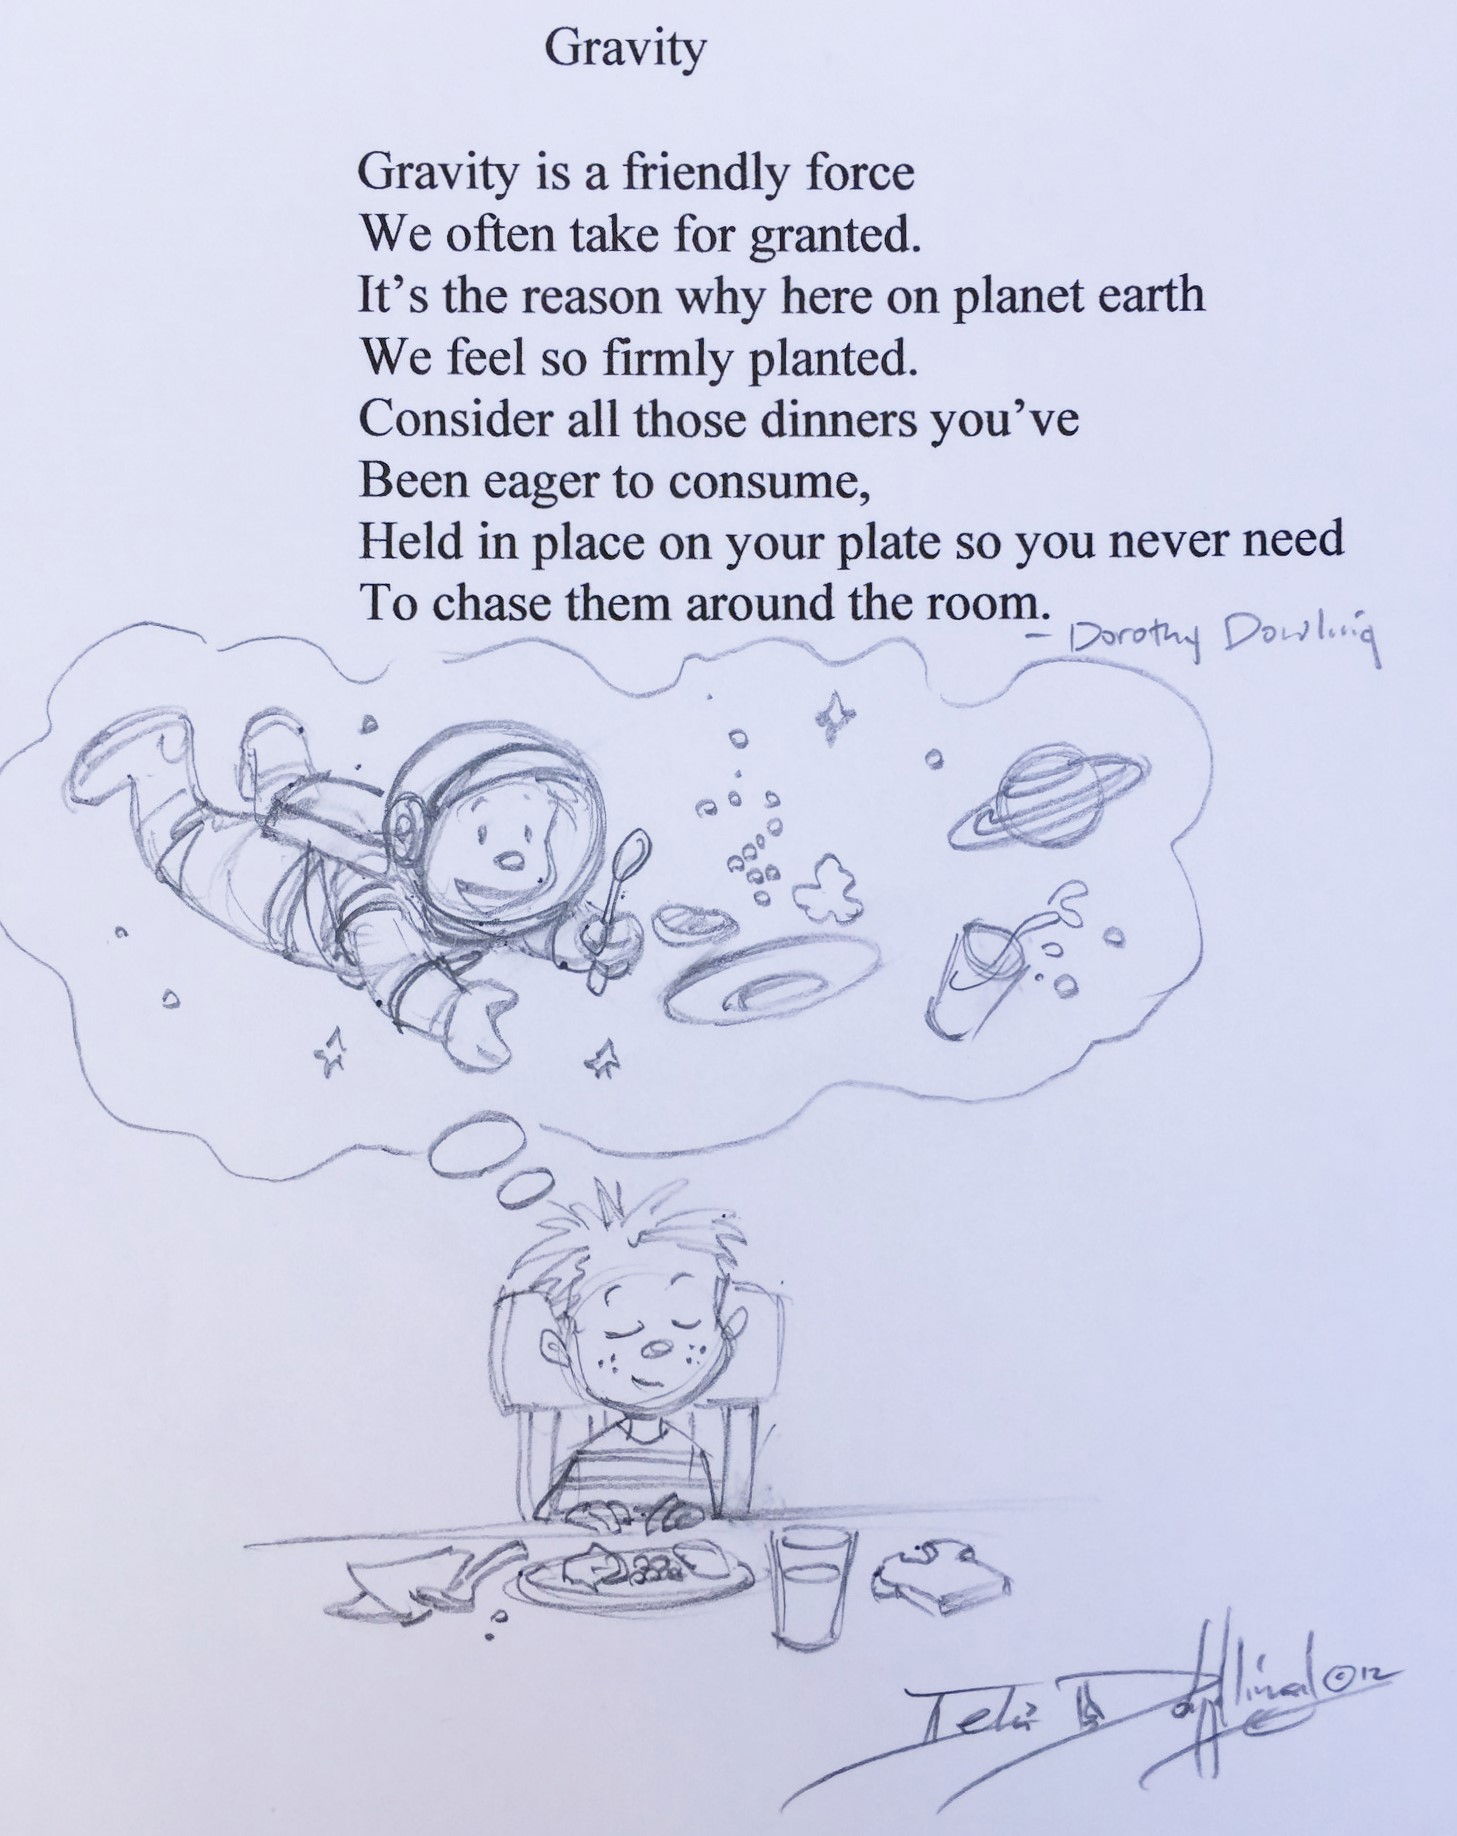 Gravity
Gravity is a friendly force
We often take for granted.
It’s the reason why here on planet earth
We feel so firmly planted.
Consider all those dinners you’ve
Been eager to consume,
Held in place on your plate so you never need
To chase them around the room.
- Dorothy Dowling
©12